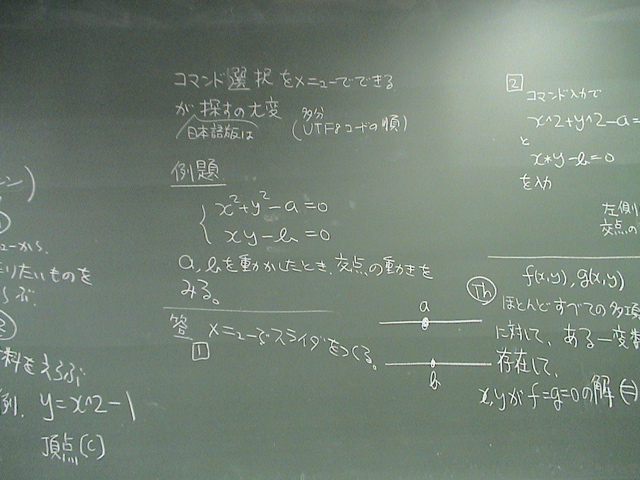 ン)
ューから、
りたいものを
らぶ.
料をえらぶ
例. y=x^2-1
頂点(C)
コマンド選択をメニューでできる
が探すの大変
日本語版は
(多分
UTF8コードの順)
例題
x²+y²-a=0
xy-b=0
a, bを動かしたとき、交点の動きを
みる。
答
1 メニューでスライダをつくる。
a
b
2
コマンド入力で
x^2+y^2-a=
と
x*y-b=0
を入力
左側
交点の
Th f(x,y), g(x,y)
ほとんどすべての多項
に対して、ある一変数
存在して、
x,yがf=g=0の解